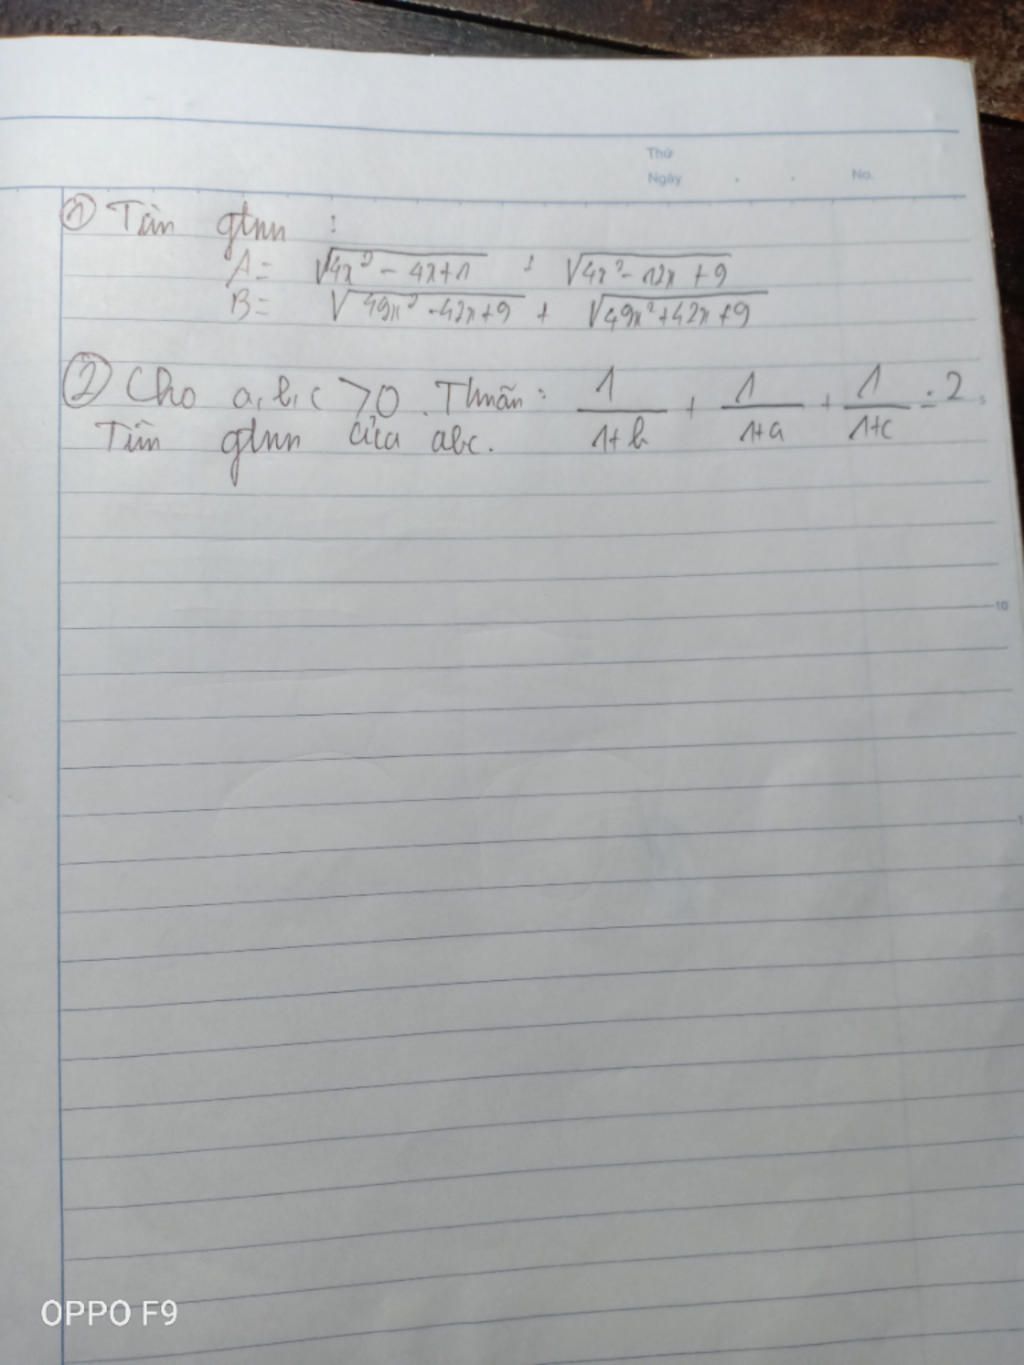 Thứ
Ngày . . No.
① Tìm gtnn :
A = √4x² - 4x+1 + √4x² - 12x + 9
B = √49x² - 42x + 9 + √49x² + 42x + 9
② Cho a, b, c > 0. Thmãn: 1/1+b + 1/1+a + 1/1+c = 2
5
Tìm gtnn của abc.
10
OPPO F9